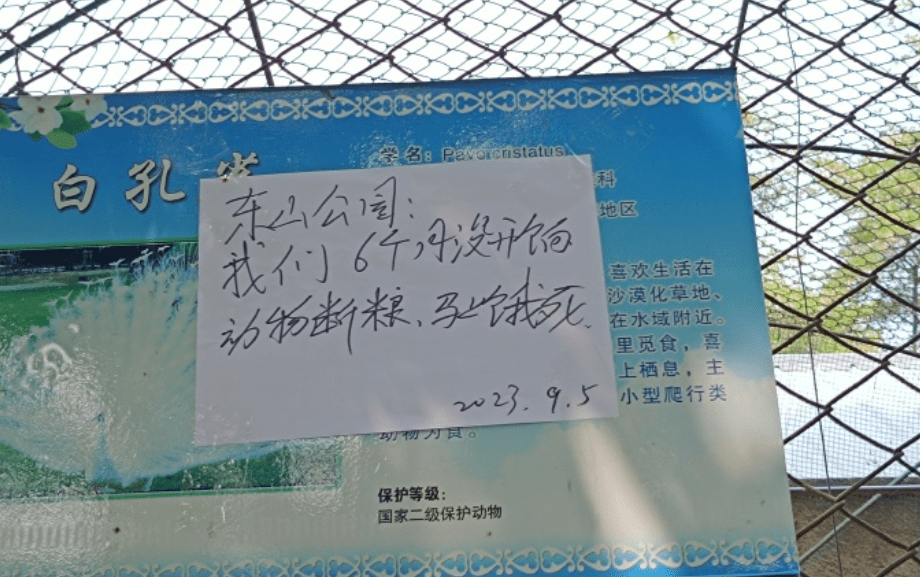 白孔雀
学名：Pavo cristatus
科
地区
喜欢生活在
沙漠化草地、
在水域附近。
里觅食，喜
上栖息，主
小型爬行类
动物为食。
保护等级：
国家二级保护动物
东山公园：
我们6个月没开饷
动物断粮、马上饿死.
2023.9.5